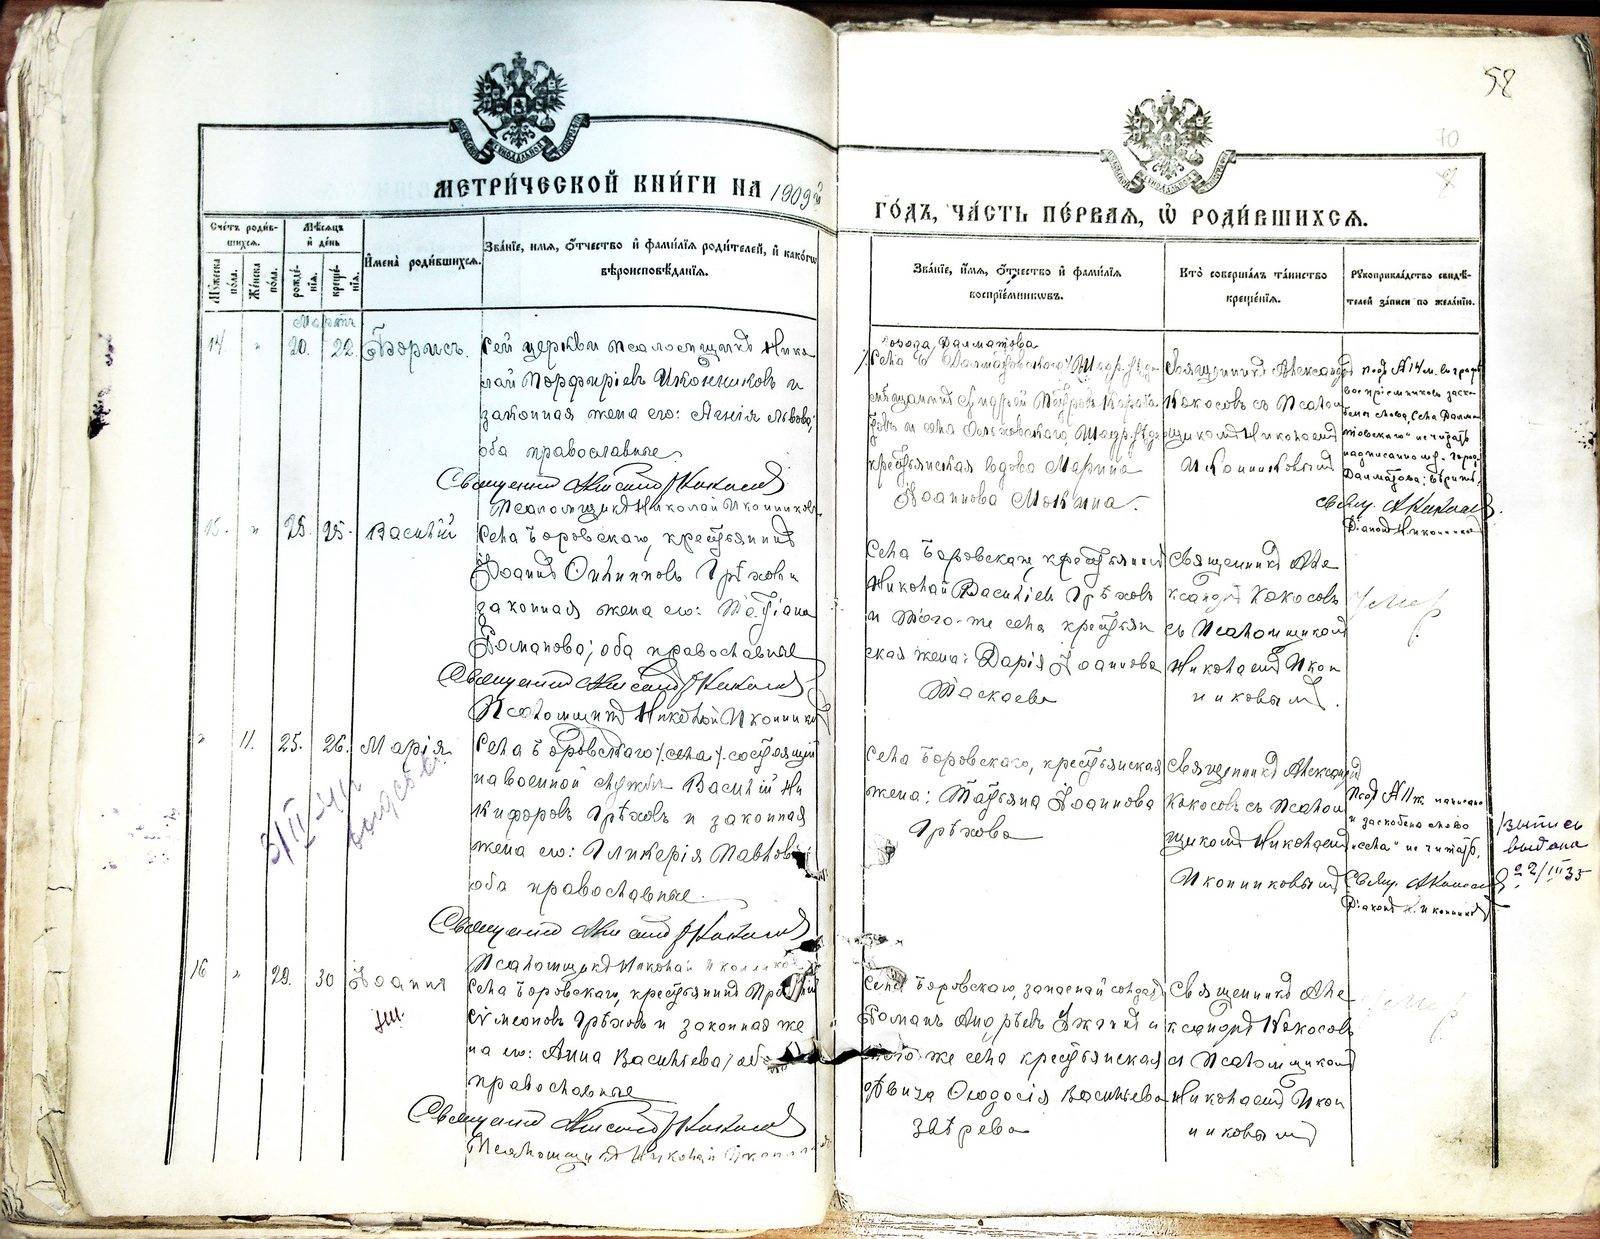 58
МЕТРИ́ЧЕСКОЙ КНИ́ГИ НА 1909й
ГО́ДЪ, ЧА́СТЬ ПЕ́РВАЯ, Ѿ РОДИ́ВШИХСѦ.
Сче́тъ роди́в-
шихся.
Мѣсяцъ
и́ де́нь
Му́жеска
по́ла.
Же́нска
по́ла.
рожде́-
нія.
креще́-
нія.
И́мена̀ роди́вшихся.
Зва́ніе, и́мя, о́тчество и́ фами́лія роди́телей, и́ како́гѡ
вѣроисповѣ́данія.
Зва́ніе, и́мя, о́тчество и́ фами́лія
воспріе́мниковъ.
Кто̀ соверша́лъ та́инство
креще́нія.
Рукоприкла́дство свидѣ́-
телей за́писи по жела́нію.
Мартъ
14. " 20. 22. Борисъ.
Сей церкви псаломщикъ Нико
лай Порфиріевъ Иконниковъ и
законная жена его: Агнія Львова;
оба православные.
Священникъ Александръ Кокосовъ
Псаломщикъ Николай Иконниковъ
города Далматова
Села
крестьянская вдова Марина
Іоаннова Мокина.
Священникъ Александръ
Кокосовъ съ Псалом
щикомъ Николаемъ
Иконниковымъ
Подъ № 14 м. въ графѣ
воспріемниковъ заско-
блено слово „Села Далма-
товскаго" не читать
надписанному: „город.
Далматова: вѣрить.
Свящ. А Кокосовъ.
Діаконъ Н. Иконниковъ
15. " 25. 25. Василій
Села Боровскаго, крестьянинъ
Іоаннъ Филипповъ Грѣховъ и
законная жена его: Татіана
Романова; оба православные
Священникъ Александръ Кокосовъ
Псаломщикъ Николай Иконниковъ
Села Боровскаго, крестьянинъ
Николай Васильевъ Грѣховъ
и того-же села крестьян
ская жена: Дарія Іоаннова
Таскаева
Священникъ Але
ксандръ Кокосовъ
съ Псаломщикомъ
Николаемъ Икон
никовымъ.
Умер
" 11. 25. 26. Марія
Села Боровскаго /:села:/ состоящій
на военной службѣ Василій Ни
кифоровъ Грѣховъ и законная
жена его: Гликерія Павлова;
оба православные.
Священникъ Александръ Кокосовъ
Псаломщикъ Николай Иконниковъ
Села Боровскаго, крестьянская
жена: Татьяна Іоаннова
Грѣхова
Священникъ Александръ
Кокосовъ съ Псалом
щикомъ Николаемъ
Иконниковымъ
Подъ № 11 ж. написано
и заскоблено слово
„села" не читать.
Свящ. А Кокосовъ
Діаконъ Н. Иконниковъ
выпись
выдана
22/III 35
16 " 29. 30 Іоаннъ
Села Боровскаго, крестьянинъ
Сумеоновъ Грѣховъ и законная же
на его: Анна Васильева; оба
православные
Священникъ Александръ Кокосовъ
Псаломщикъ Николай Иконниковъ
Села Боровскаго, запасный солдатъ
Романъ Андреевъ и
того же села крестьянская
дѣвица Феодосія Васильева
Звѣрева
Священникъ Але
ксандръ Кокосовъ
съ Псаломщикомъ
Николаемъ Икон
никовымъ
Умер